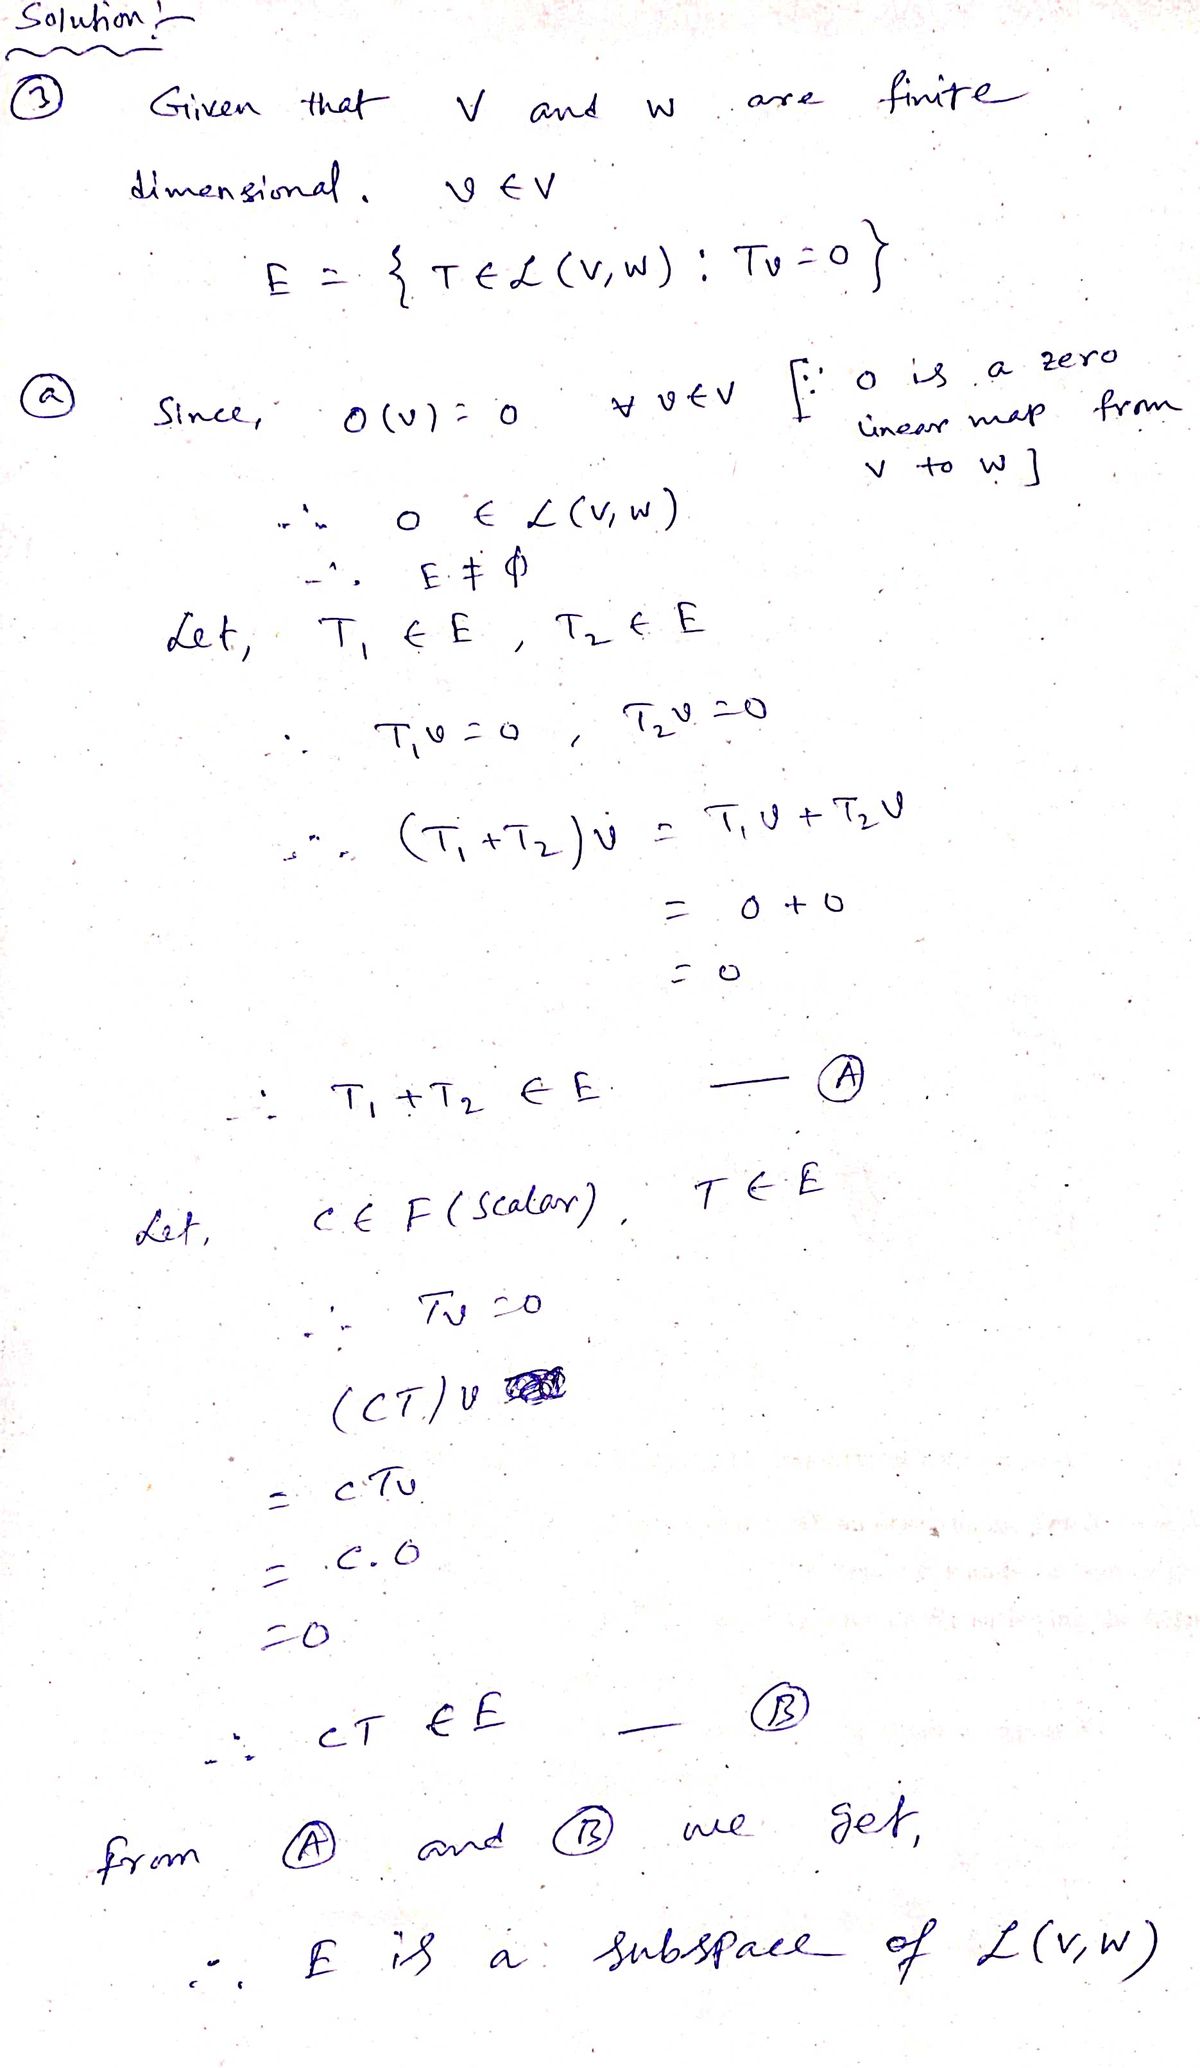 Solution :-
③ Given that V and W are finite
dimensional. v ∈ V
E = { T ∈ L (V, W) : Tv = 0 }
ⓐ Since, 0(v) = 0 ∀ v ∈ V [∵ 0 is a zero
linear map from
V to W ]
∴ 0 ∈ L (V, W)
∴ E ≠ ϕ
Let, T₁ ∈ E , T₂ ∈ E
∴ T₁v = 0 , T₂v = 0
∴ (T₁ + T₂) v = T₁v + T₂v
= 0 + 0
= 0
∴ T₁ + T₂ ∈ E. — Ⓐ
Let, C ∈ F (Scalar), T ∈ E
∴ Tv = 0
(CT) v
= CTv
= C. 0
= 0
∴ CT ∈ E — Ⓑ
from Ⓐ and Ⓑ we get,
∴ E is a subspace of L (V, W)